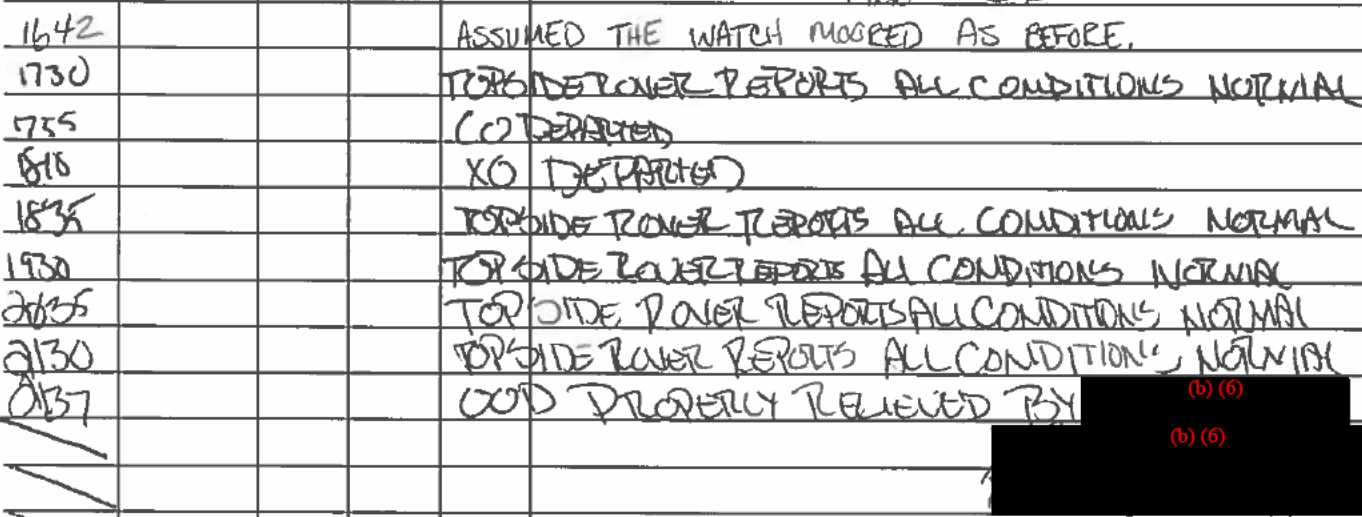 1642 ASSUMED THE WATCH MOORED AS BEFORE.
1730 TOPSIDE ROVER REPORTS ALL CONDITIONS NORMAL
1755 CO DEPARTED
1810 XO DEPARTED
1835 TOPSIDE ROVER REPORTS ALL CONDITIONS NORMAL
1930 TOPSIDE ROVER REPORTS ALL CONDITIONS NORMAL
2035 TOPSIDE ROVER REPORTS ALL CONDITIONS NORMAL
2130 TOPSIDE ROVER REPORTS ALL CONDITIONS NORMAL
2137 OOD PROPERLY RELIEVED BY (b) (6)
(b) (6)